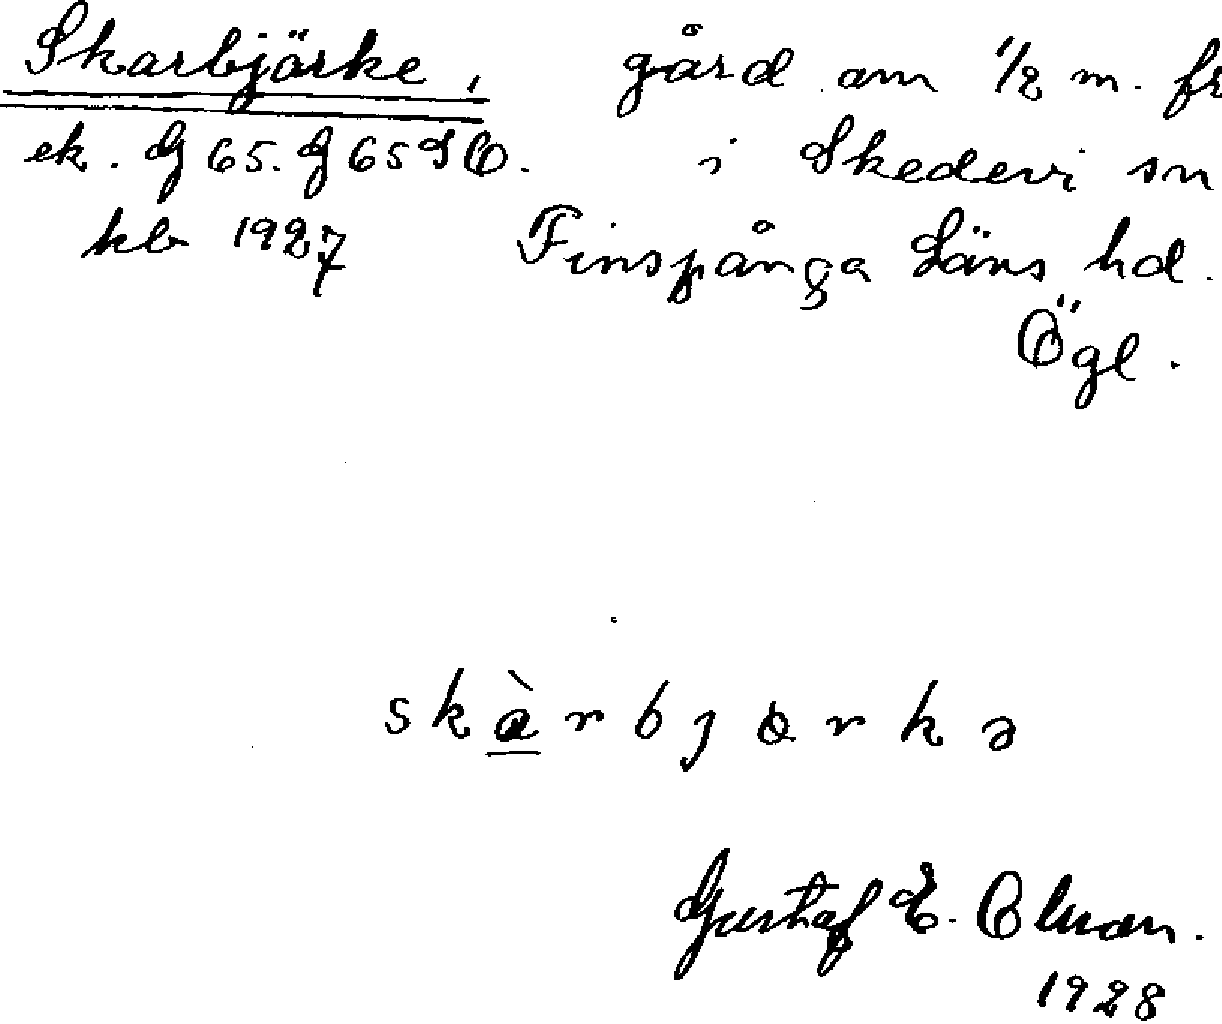 Skarbjärke, gård om 1/2 m. fr
ek. G 65. G 65 SO. i Skedevi sn
kb 1927 Finspånga Läns hd.
Ögl.
skàrbjærkə
Gustaf E. Olman.
1928